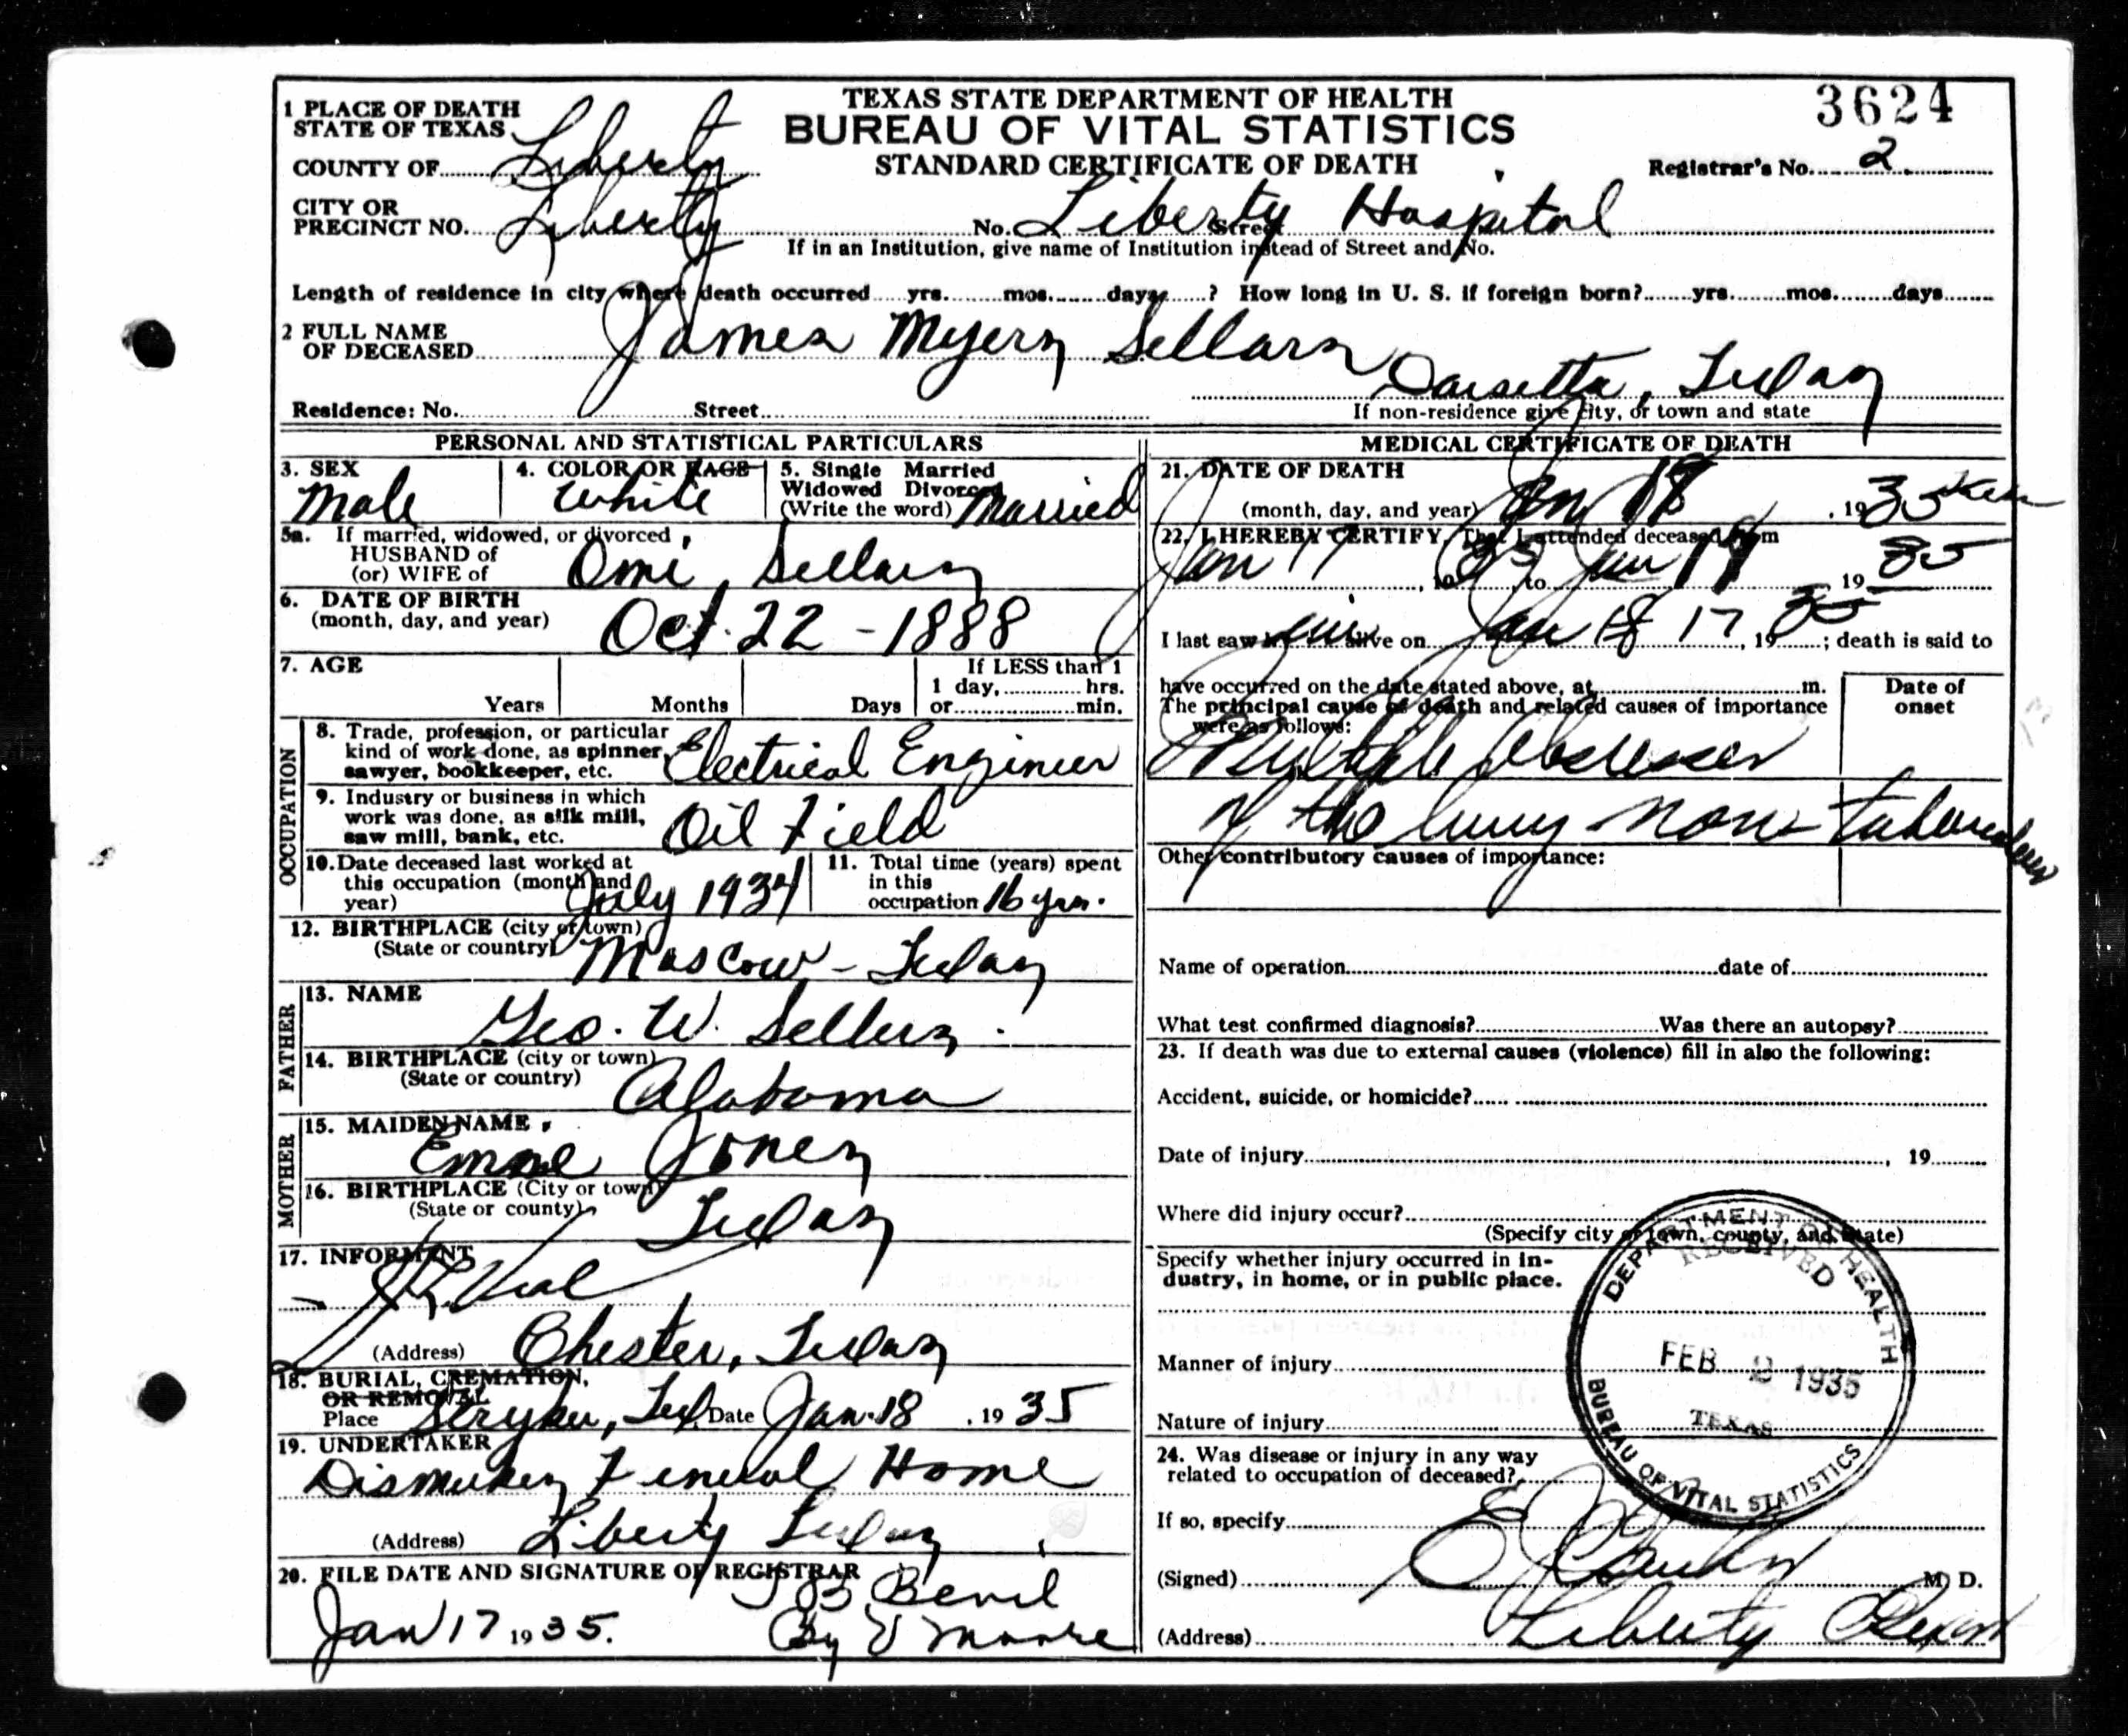 3624
TEXAS STATE DEPARTMENT OF HEALTH
BUREAU OF VITAL STATISTICS
STANDARD CERTIFICATE OF DEATH
1 PLACE OF DEATH
STATE OF TEXAS
COUNTY OF Liberty
Registrar's No. 2
CITY OR
PRECINCT NO. Liberty No. Liberty Hospital Street
If in an Institution, give name of Institution instead of Street and No.
Length of residence in city where death occurred yrs. mos. days ? How long in U. S. if foreign born? yrs. mos. days
2 FULL NAME
OF DECEASED James Myers Sellars
Daisetta, Texas
Residence: No. Street
If non-residence give city, or town and state
PERSONAL AND STATISTICAL PARTICULARS
3. SEX Male
4. COLOR OR RACE White
5. Single Married
Widowed Divorced
(Write the word) Married
5a. If married, widowed, or divorced
HUSBAND of
(or) WIFE of Omi Sellars
6. DATE OF BIRTH
(month, day, and year) Oct. 22 - 1888
7. AGE
Years Months Days
If LESS than 1
1 day, hrs.
or min.
OCCUPATION
8. Trade, profession, or particular
kind of work done, as spinner,
sawyer, bookkeeper, etc. Electrical Engineer
9. Industry or business in which
work was done, as silk mill,
saw mill, bank, etc. Oil Field
10. Date deceased last worked at
this occupation (month and
year) July 1934
11. Total time (years) spent
in this
occupation 16 yrs.
12. BIRTHPLACE (city or town)
(State or country) Moscow - Texas
FATHER
13. NAME
Geo. W. Sellers
14. BIRTHPLACE (city or town)
(State or country) Alabama
MOTHER
15. MAIDEN NAME
Jones
16. BIRTHPLACE (City or town)
(State or county) Texas
17. INFORMANT
(Address) Chester, Texas
18. BURIAL, CREMATION,
OR REMOVAL
Place Stryker, Tex. Date Jan. 18, 1935
19. UNDERTAKER
Dismukes Funeral Home
(Address) Liberty Texas
20. FILE DATE AND SIGNATURE OF REGISTRAR
Jan 17 1935.
Bevil
By E Moore
MEDICAL CERTIFICATE OF DEATH
21. DATE OF DEATH
(month, day, and year) Jan, 1935
22. I HEREBY CERTIFY, That I attended deceased from
Jan 17, 1935, to Jan, 1935
I last saw him alive on Jan 18 17, 1935; death is said to
have occurred on the date stated above, at m.
The principal cause of death and related causes of importance
were as follows:
Date of
onset
Multiple Abscesses
of the lung non-tubercular
Other contributory causes of importance:
Name of operation date of
What test confirmed diagnosis? Was there an autopsy?
23. If death was due to external causes (violence) fill in also the following:
Accident, suicide, or homicide?
Date of injury, 19
Where did injury occur?
(Specify city or town, county, and State)
Specify whether injury occurred in in-
dustry, in home, or in public place.
Manner of injury
Nature of injury
24. Was disease or injury in any way
related to occupation of deceased?
If so, specify
(Signed) M. D.
(Address) Liberty Texas
DEPARTMENT OF HEALTH
RECEIVED
FEB 2 1935
TEXAS
BUREAU OF VITAL STATISTICS